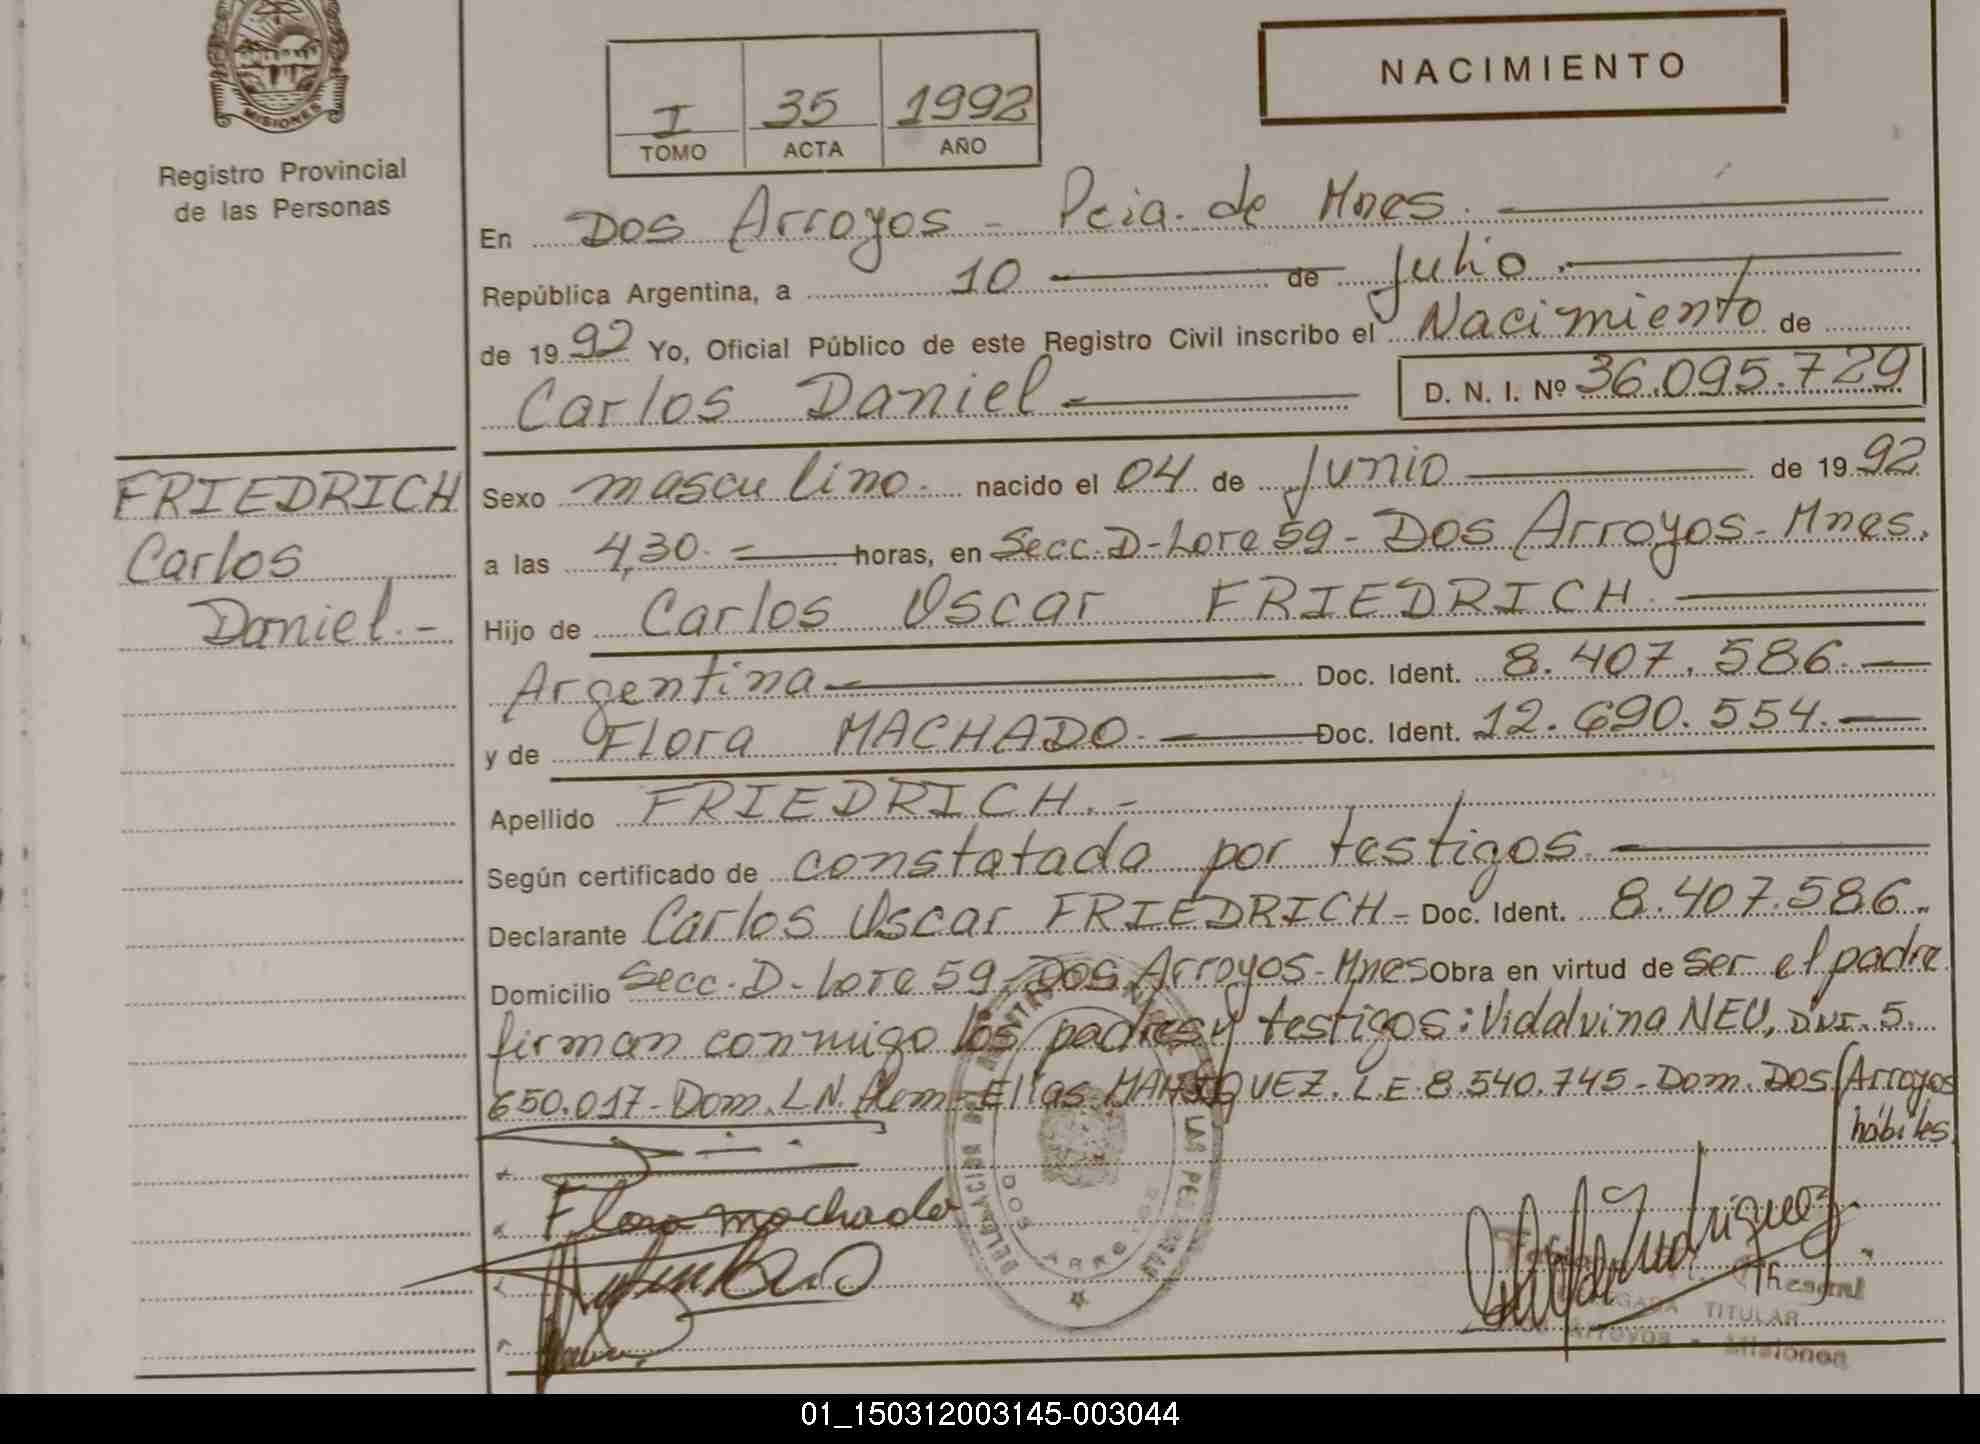 MISIONES
Registro Provincial
de las Personas
I 35 1992
TOMO ACTA AÑO
NACIMIENTO
En Dos Arroyos - Pcia. de Mnes.
República Argentina, a 10 de Julio.
de 1992 Yo, Oficial Público de este Registro Civil inscribo el Nacimiento de
Carlos Daniel D. N. I. Nº 36.095.729
FRIEDRICH
Carlos
Daniel.-
Sexo masculino. nacido el 04 de Junio de 1992
a las 4,30.= horas, en Secc. D-Lote 59- Dos Arroyos- Mnes.
Hijo de Carlos Oscar FRIEDRICH.
Argentina Doc. Ident. 8.407.586.
y de Flora MACHADO. Doc. Ident. 12.690.554.
Apellido FRIEDRICH.-
Según certificado de constatada por testigos.
Declarante Carlos Oscar FRIEDRICH- Doc. Ident. 8.407.586.
Domicilio Secc. D- Lote 59- Dos Arroyos- Mnes Obra en virtud de ser el padre
firman conmigo los padres y testigos: Vidalvina NEU, DNI. 5.
650.017- Dom. L N. Alem- Elías L.E. 8.540.745- Dom. Dos Arroyos
hábiles.
Flora machado
DOS ARROYOS
LAS PERSONAS
TITULAR
Arroyos - Misiones
01_150312003145-003044